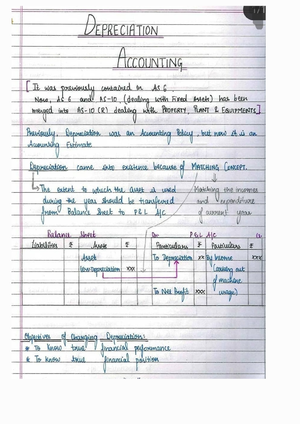 DEPRECIATION
ACCOUNTING
[ It was previously contained in AS 6
Now, AS 6 and AS-10 (dealing with Fixed Assets) has been
merged into AS-10 (R) dealing with PROPERTY, PLANT & EQUIPMENTS]
Previously, Depreciation was an Accounting Policy, but now it is an
Accounting Estimate
Depreciation came into existence because of MATCHING CONCEPT.
The extent to which the Asset is used
during the year should be transferred
from Balance Sheet to P&L A/c
Matching the incomes
and expenditure
of current year
Balance Sheet
Liabilities ₹ Asset ₹
Asset
Less Depreciation xxx
Dr P&L A/C Cr
Particulars ₹ Particulars ₹
To Depreciation xx By Income xx
(carrying out
of machine
usage)
To Net Profit xxx
Objectives of Charging Depreciation:
* To know true financial performance
* To know true financial position